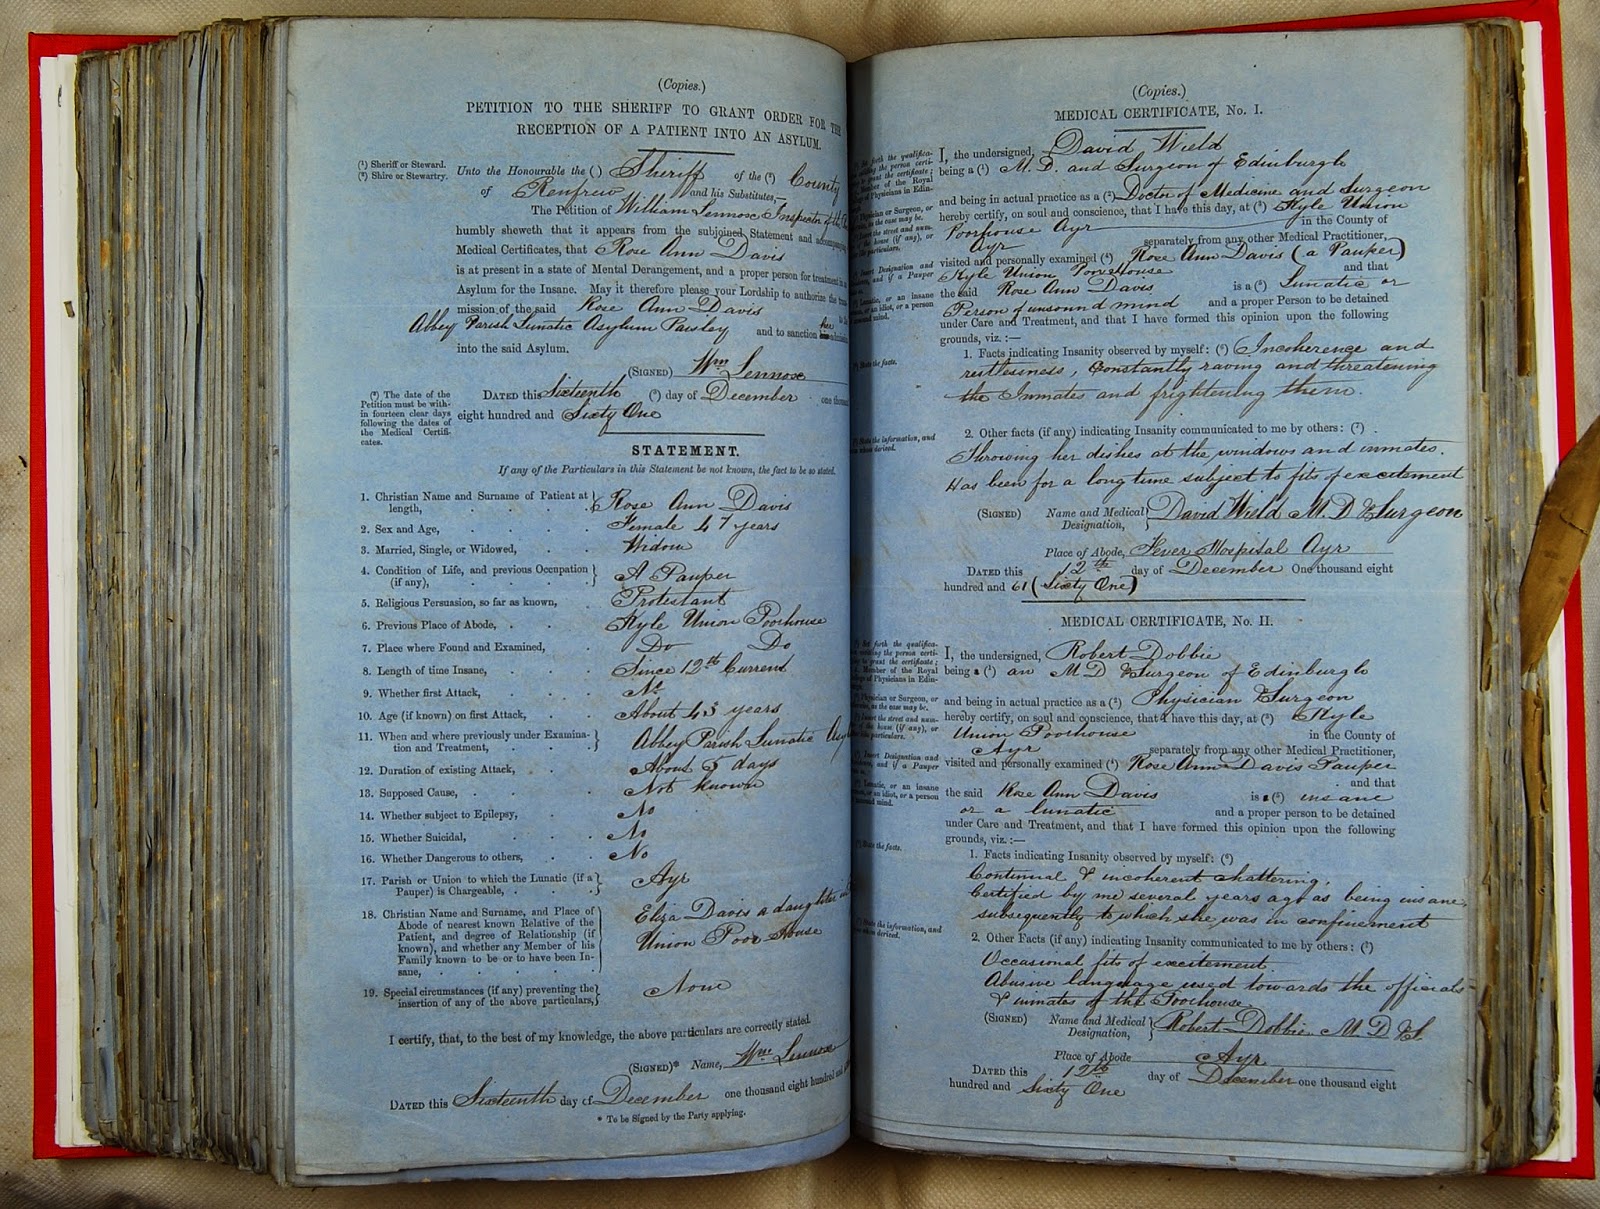 (Copies.)
PETITION TO THE SHERIFF TO GRANT ORDER FOR THE
RECEPTION OF A PATIENT INTO AN ASYLUM.
(1) Sheriff or Steward.
(2) Shire or Stewartry.
Unto the Honourable the (1) Sheriff of the (2) County
of Renfrew and his Substitutes,—
The Petition of William Lennox Inspector of the
humbly sheweth that it appears from the subjoined Statement and
Medical Certificates, that Rose Ann Davis
is at present in a state of Mental Derangement, and a proper person for treatment in
Asylum for the Insane. May it therefore please your Lordship to authorize the
mission of the said Rose Ann Davis to the
Abbey Parish Lunatic Asylum Paisley and to sanction her
into the said Asylum.
(SIGNED) Wm Lennox
(3) The date of the
Petition must be with-
in fourteen clear days
following the dates of
the Medical Certifi-
cates.
DATED this Sixteenth (3) day of December one thousand
eight hundred and Sixty One
STATEMENT.
If any of the Particulars in this Statement be not known, the fact to be so stated.
1. Christian Name and Surname of Patient at length, Rose Ann Davis
2. Sex and Age, Female 47 years
3. Married, Single, or Widowed, Widow
4. Condition of Life, and previous Occupation (if any), A Pauper
5. Religious Persuasion, so far as known, Protestant
6. Previous Place of Abode, Kyle Union Poorhouse
7. Place where Found and Examined, Do Do
8. Length of time Insane, Since 12th Current
9. Whether first Attack, No
10. Age (if known) on first Attack, About 43 years
11. When and where previously under Examina-
tion and Treatment, Abbey Parish Lunatic
12. Duration of existing Attack, About 5 days
13. Supposed Cause, Not known
14. Whether subject to Epilepsy, No
15. Whether Suicidal, No
16. Whether Dangerous to others, No
17. Parish or Union to which the Lunatic (if a
Pauper) is Chargeable, Ayr
18. Christian Name and Surname, and Place of
Abode of nearest known Relative of the
Patient, and degree of Relationship (if
known), and whether any Member of his
Family known to be or to have been In-
sane, Eliza Davis a daughter in
Union Poor House
19. Special circumstances (if any) preventing the
insertion of any of the above particulars, None
I certify, that, to the best of my knowledge, the above particulars are correctly stated.
(SIGNED)* Name, Wm Lennox
DATED this Sixteenth day of December one thousand eight hundred and
* To be Signed by the Party applying.
(Copies.)
MEDICAL CERTIFICATE, No. I.
I, the undersigned, David Wield
being a (1) M.D. and Surgeon of Edinburgh
and being in actual practice as a (2) Doctor of Medicine and Surgeon
hereby certify, on soul and conscience, that I have this day, at (3) Kyle Union
Poorhouse Ayr in the County of
Ayr separately from any other Medical Practitioner,
visited and personally examined (4) Rose Ann Davis (a Pauper)
Kyle Union Poorhouse and that
the said Rose Ann Davis is a (5) Lunatic or
Person of unsound mind and a proper Person to be detained
under Care and Treatment, and that I have formed this opinion upon the following
grounds, viz. :—
1. Facts indicating Insanity observed by myself: (6) Incoherence and
restlessness, Constantly raving and threatening
the Inmates and frightening them.
2. Other facts (if any) indicating Insanity communicated to me by others: (7)
Throwing her dishes at the windows and inmates.
Has been for a long time subject to fits of excitement
(SIGNED) Name and Medical Designation, David Wield M.D & Surgeon
Place of Abode, Fever Hospital Ayr
DATED this 12th day of December One thousand eight
hundred and 61 (Sixty One)
MEDICAL CERTIFICATE, No. II.
I, the undersigned, Robert Dobbie
being a (1) an M D & Surgeon of Edinburgh
and being in actual practice as a (2) Physician & Surgeon
hereby certify, on soul and conscience, that I have this day, at (3) Kyle
Union Poorhouse in the County of
Ayr separately from any other Medical Practitioner,
visited and personally examined (4) Rose Ann Davis Pauper
and that
the said Rose Ann Davis is a (5) insane
or a lunatic and a proper person to be detained
under Care and Treatment, and that I have formed this opinion upon the following
grounds, viz. :—
1. Facts indicating Insanity observed by myself: (6)
Continual & incoherent chattering.
Certified by me several years ago as being insane,
subsequently to which she was in confinement
2. Other Facts (if any) indicating Insanity communicated to me by others: (7)
Occasional fits of excitement
Abusive language used towards the officials
& inmates of the Poorhouse
(SIGNED) Name and Medical Designation, Robert Dobbie M.D & S.
Place of Abode Ayr
DATED this 12th day of December one thousand eight
hundred and Sixty One